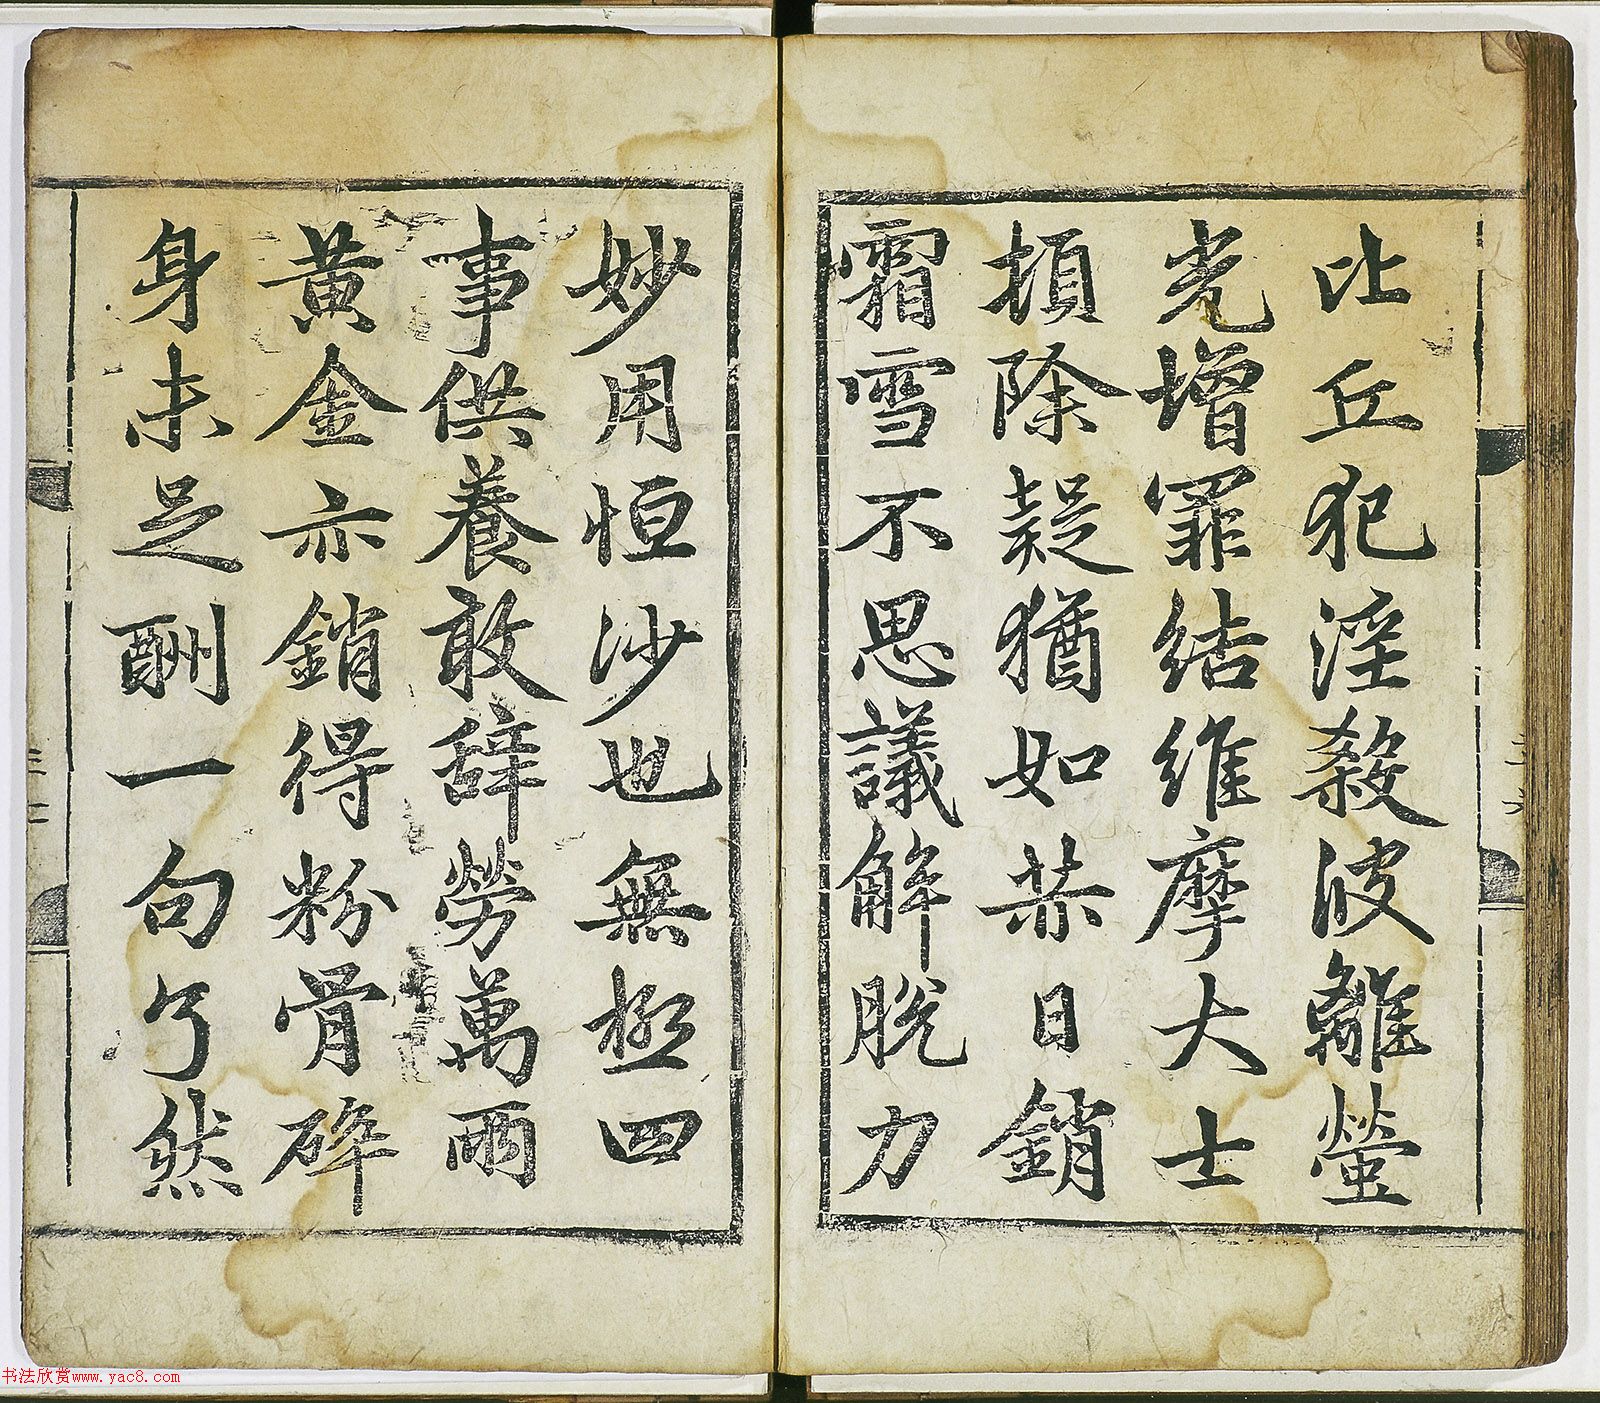 比丘犯淫殺波離螢
光增罪結維摩大士
頓除疑猶如赫日銷
霜雪不思議解脫力
妙用恒沙也無極四
事供養敢辭勞萬兩
黃金亦銷得粉骨碎
身未足酬一句了然
书法欣赏www.yac8.com